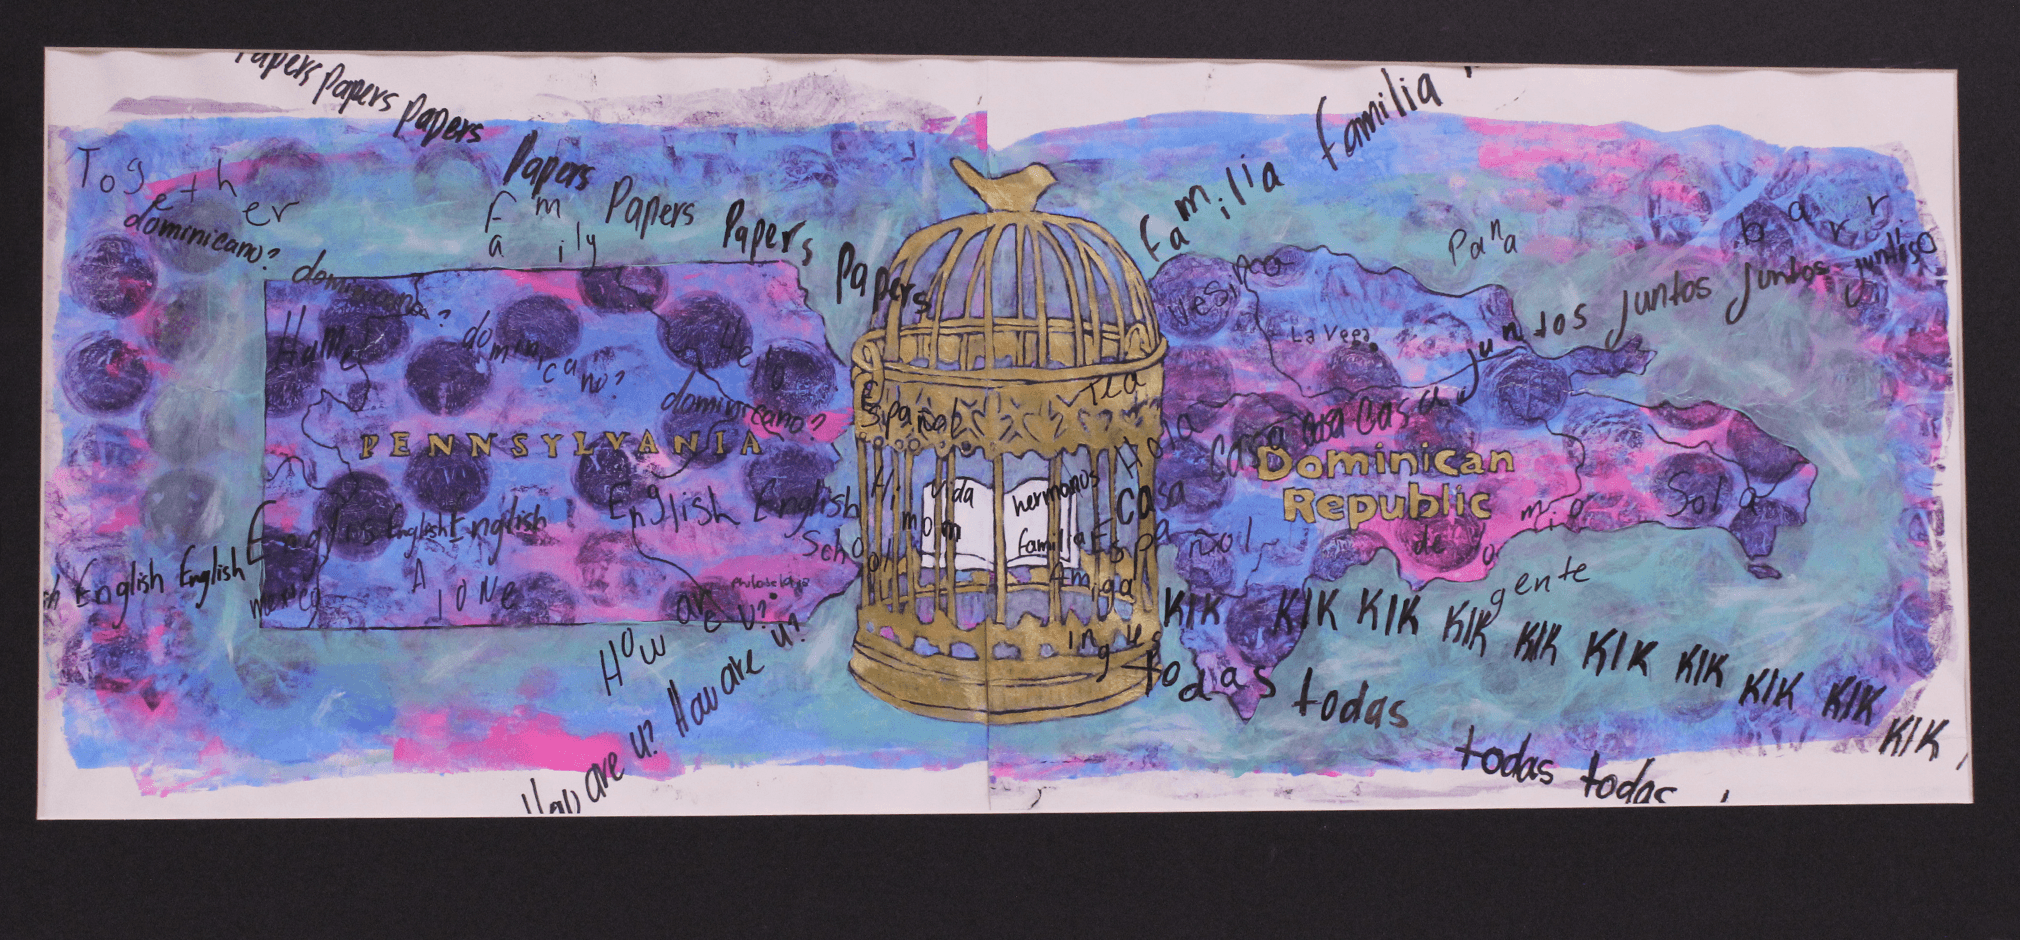 Papers Papers Papers Papers Papers Papers Papers
Together
dominicano? dominicano? dominicano? dominicano?
Family
Home
Helo
PENNSYLVANIA
English English English English English English English
mexico
Alone
Philadelphia
School
How are u?
How are u? How are u?
Español
Hi
mom
vida
hermanos
familia
Tia
Hola
Amiga
ingles
Familia Familia
Pana
barrio
vecino
La Vega
juntos juntos juntos juntos
casa casa casa casa
Dominican
Republic
Español
Sola
de
mio
gente
KIK KIK KIK KIK KIK KIK KIK KIK KIK KIK
todas todas todas todas